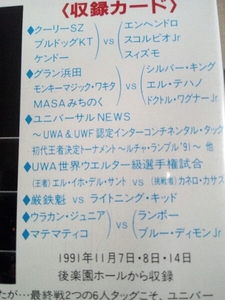 〈収録カード〉
◆クーリーSZ
ブルドッグKT
ケンドー
vs
エンヘンドロ
スコルピオJr
スィズモ
◆グラン浜田
モンキーマジック・ワキタ
MASAみちのく
vs
シルバー・キング
エル・テハノ
ドクトル・ワグナーJr
◆ユニバーサルNEWS
～UWA&UWF認定インターコンチネンタル・タッグ
初代王者決定トーナメント～ルチャ・ランブル'91～他
◆UWA世界ウエルター級選手権試合
(王者)エル・イホ・デル・サント vs (挑戦者)カネロ・カサス
◆厳鉄魁 vs ライトニング・キッド
◆ウラカン・ジュニア
◆マテマティコ
vs
ランボー
ブルー・ディモンJr
1991年11月7日・8日・14日
後楽園ホールから収録
たが…最終戦2つの6人タッグこそ、ユニバー